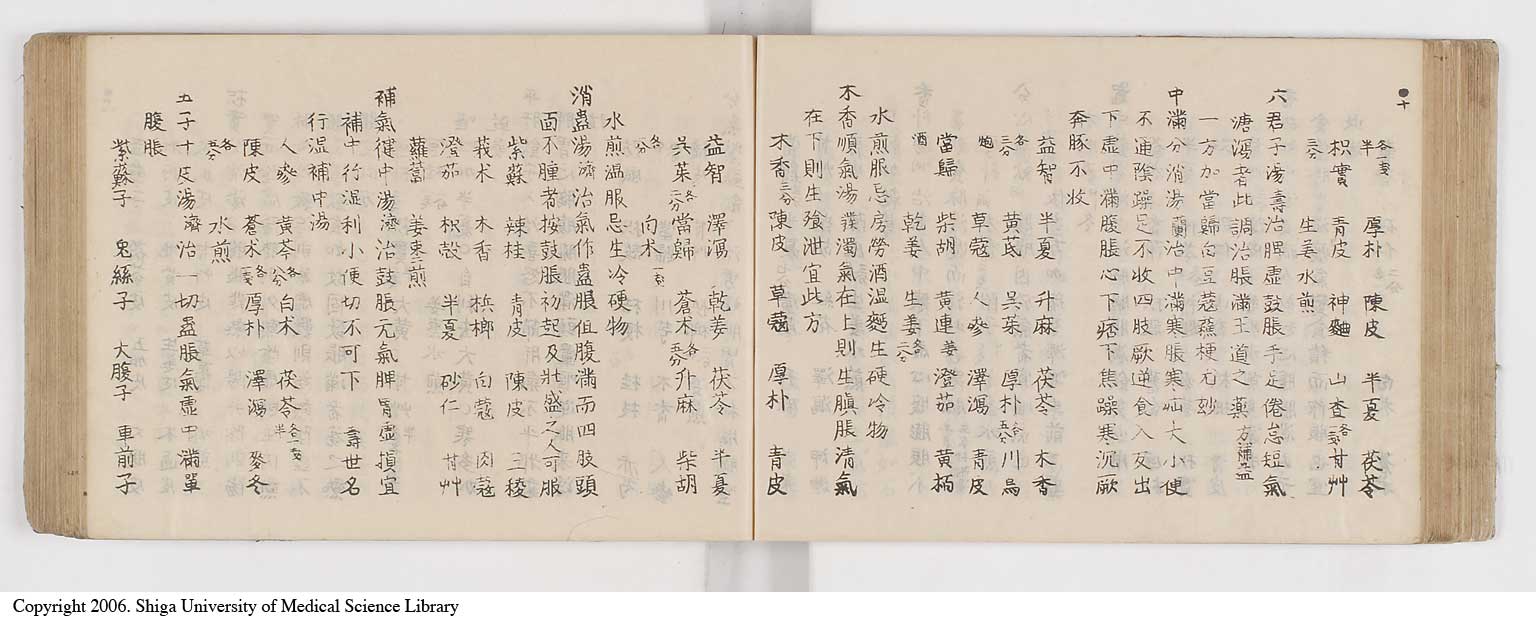 十
半 各一戔 厚朴 陳皮 半夏 茯苓 二分
枳實 青皮 神麯 山査 各 甘艸
三分 生姜水煎
六君子湯 壽 治脾虚鼓脹手足倦怠短氣
溏瀉者此調治脹滿王道之藥 方
一方加當歸白豆蔻蘓梗尤玅
中滿分消湯 蘭 治中滿寒脹寒疝大小便
不通陰躁足不收四肢厥逆食入反出
下虚中滿腹脹心下痞下焦躁寒沉厥
奔豚不收
益智 半夏 升麻 茯苓 木香
各三分 黄芪 呉茱 厚朴 各五分 川烏
炮 草蔻 人參 澤瀉 青皮
當歸 柴胡 黄連 姜 澄茄 黄栢
酒 乾姜 生姜 各二分
水煎服忌房勞酒温麪生硬冷物
木香順氣湯 撲 濁氣在上則生䐜脹清氣
在下則生飧泄宜此方
木香 三分 陳皮 草蔻 厚朴 青皮
益智 澤瀉 乾姜 茯苓 半夏
呉茱 各二分 當歸 蒼术 各五分 升麻 柴胡
各 白术
水煎温服忌生冷硬物
消蠱湯 濟 治氣作蠱脹但腹滿而四肢頭
面不腫者按鼓脹初起及壯盛之人可服
紫蘇 辣桂 青皮 陳皮 三稜
莪术 木香 梹榔 白蔻 肉蔻
澄茄 枳殻 半夏 砂仁 甘艸
蘿蔔 姜棗煎 半
補氣徤中湯 濟 治鼓脹元氣脾胃虚損宜
補中行湿利小便切不可下 壽世名
行湿補中湯
人參 黄芩 各 白术 茯苓 各一戔
陳皮 蒼术 各 厚朴 澤瀉 麥冬
各五分 水煎
五子十皮湯 濟 治一切蠱脹氣虚中滿單
腹脹
紫蘇子 兎絲子 大腹子 車前子
Copyright 2006. Shiga University of Medical Science Library